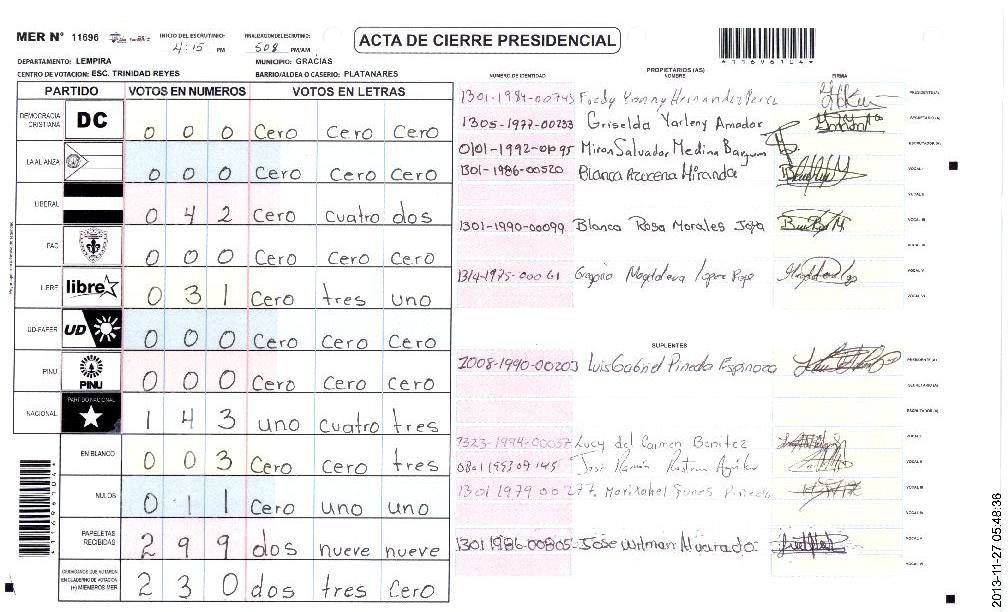 MER N° 11696 INICIO DEL ESCRUTINIO: 4:15 PM FINALIZACION DEL ESCRUTINIO: 508 PM/AM
ACTA DE CIERRE PRESIDENCIAL
*11696104*
DEPARTAMENTO: LEMPIRA MUNICIPIO: GRACIAS
CENTRO DE VOTACION: ESC. TRINIDAD REYES BARRIO/ALDEA O CASERIO: PLATANARES
PARTIDO VOTOS EN NUMEROS VOTOS EN LETRAS
DEMOCRACIA CRISTIANA DC 0 0 0 Cero Cero Cero
LA ALIANZA 0 0 0 Cero Cero Cero
LIBERAL 0 4 2 Cero cuatro dos
PAC 0 0 0 Cero Cero Cero
LIBRE libre 0 3 1 Cero tres uno
UD-FAPER UD 0 0 0 Cero Cero Cero
PINU PINU 0 0 0 Cero Cero Cero
NACIONAL PARTIDO NACIONAL 1 4 3 uno cuatro tres
EN BLANCO 0 0 3 Cero Cero tres
NULOS 0 1 1 Cero uno uno
PAPELETAS RECIBIDAS 2 9 9 dos nueve nueve
CIUDADANOS QUE VOTARON EN CUADERNO DE VOTACION (+) MIEMBROS MER 2 3 0 dos tres Cero
PROPIETARIOS (AS)
NUMERO DE IDENTIDAD NOMBRE FIRMA
1301-1984-00745 Fredy Yanny Hernandez Perez PRESIDENTE(A)
1305-1977-00233 Griselda Yarleny Amador SECRETARIO (A)
Miron Salvador Medina ESCRUTADOR (A)
1301-1986-00520 Blanca Azucena Miranda VOCAL I
VOCAL II
1301-1990-00099 Blanca Rosa Morales VOCAL III
VOCAL IV
Magdalena VOCAL V
VOCAL VI
SUPLENTES
2008-1990-00203 Luis Gabriel Pineda Espinoza PRESIDENTE (A)
SECRETARIO (A)
ESCRUTADOR (A)
1323-1994-00057 Lucy del Carmen Benitez VOCAL I
José Ramón VOCAL II
1301 1979 00277 Maritabel Funes Pineda VOCAL III
VOCAL IV
1301 1986-00805 Jose Wilman Alvarado VOCAL V
VOCAL VI
*11696104*
2013-11-27 05:48:36